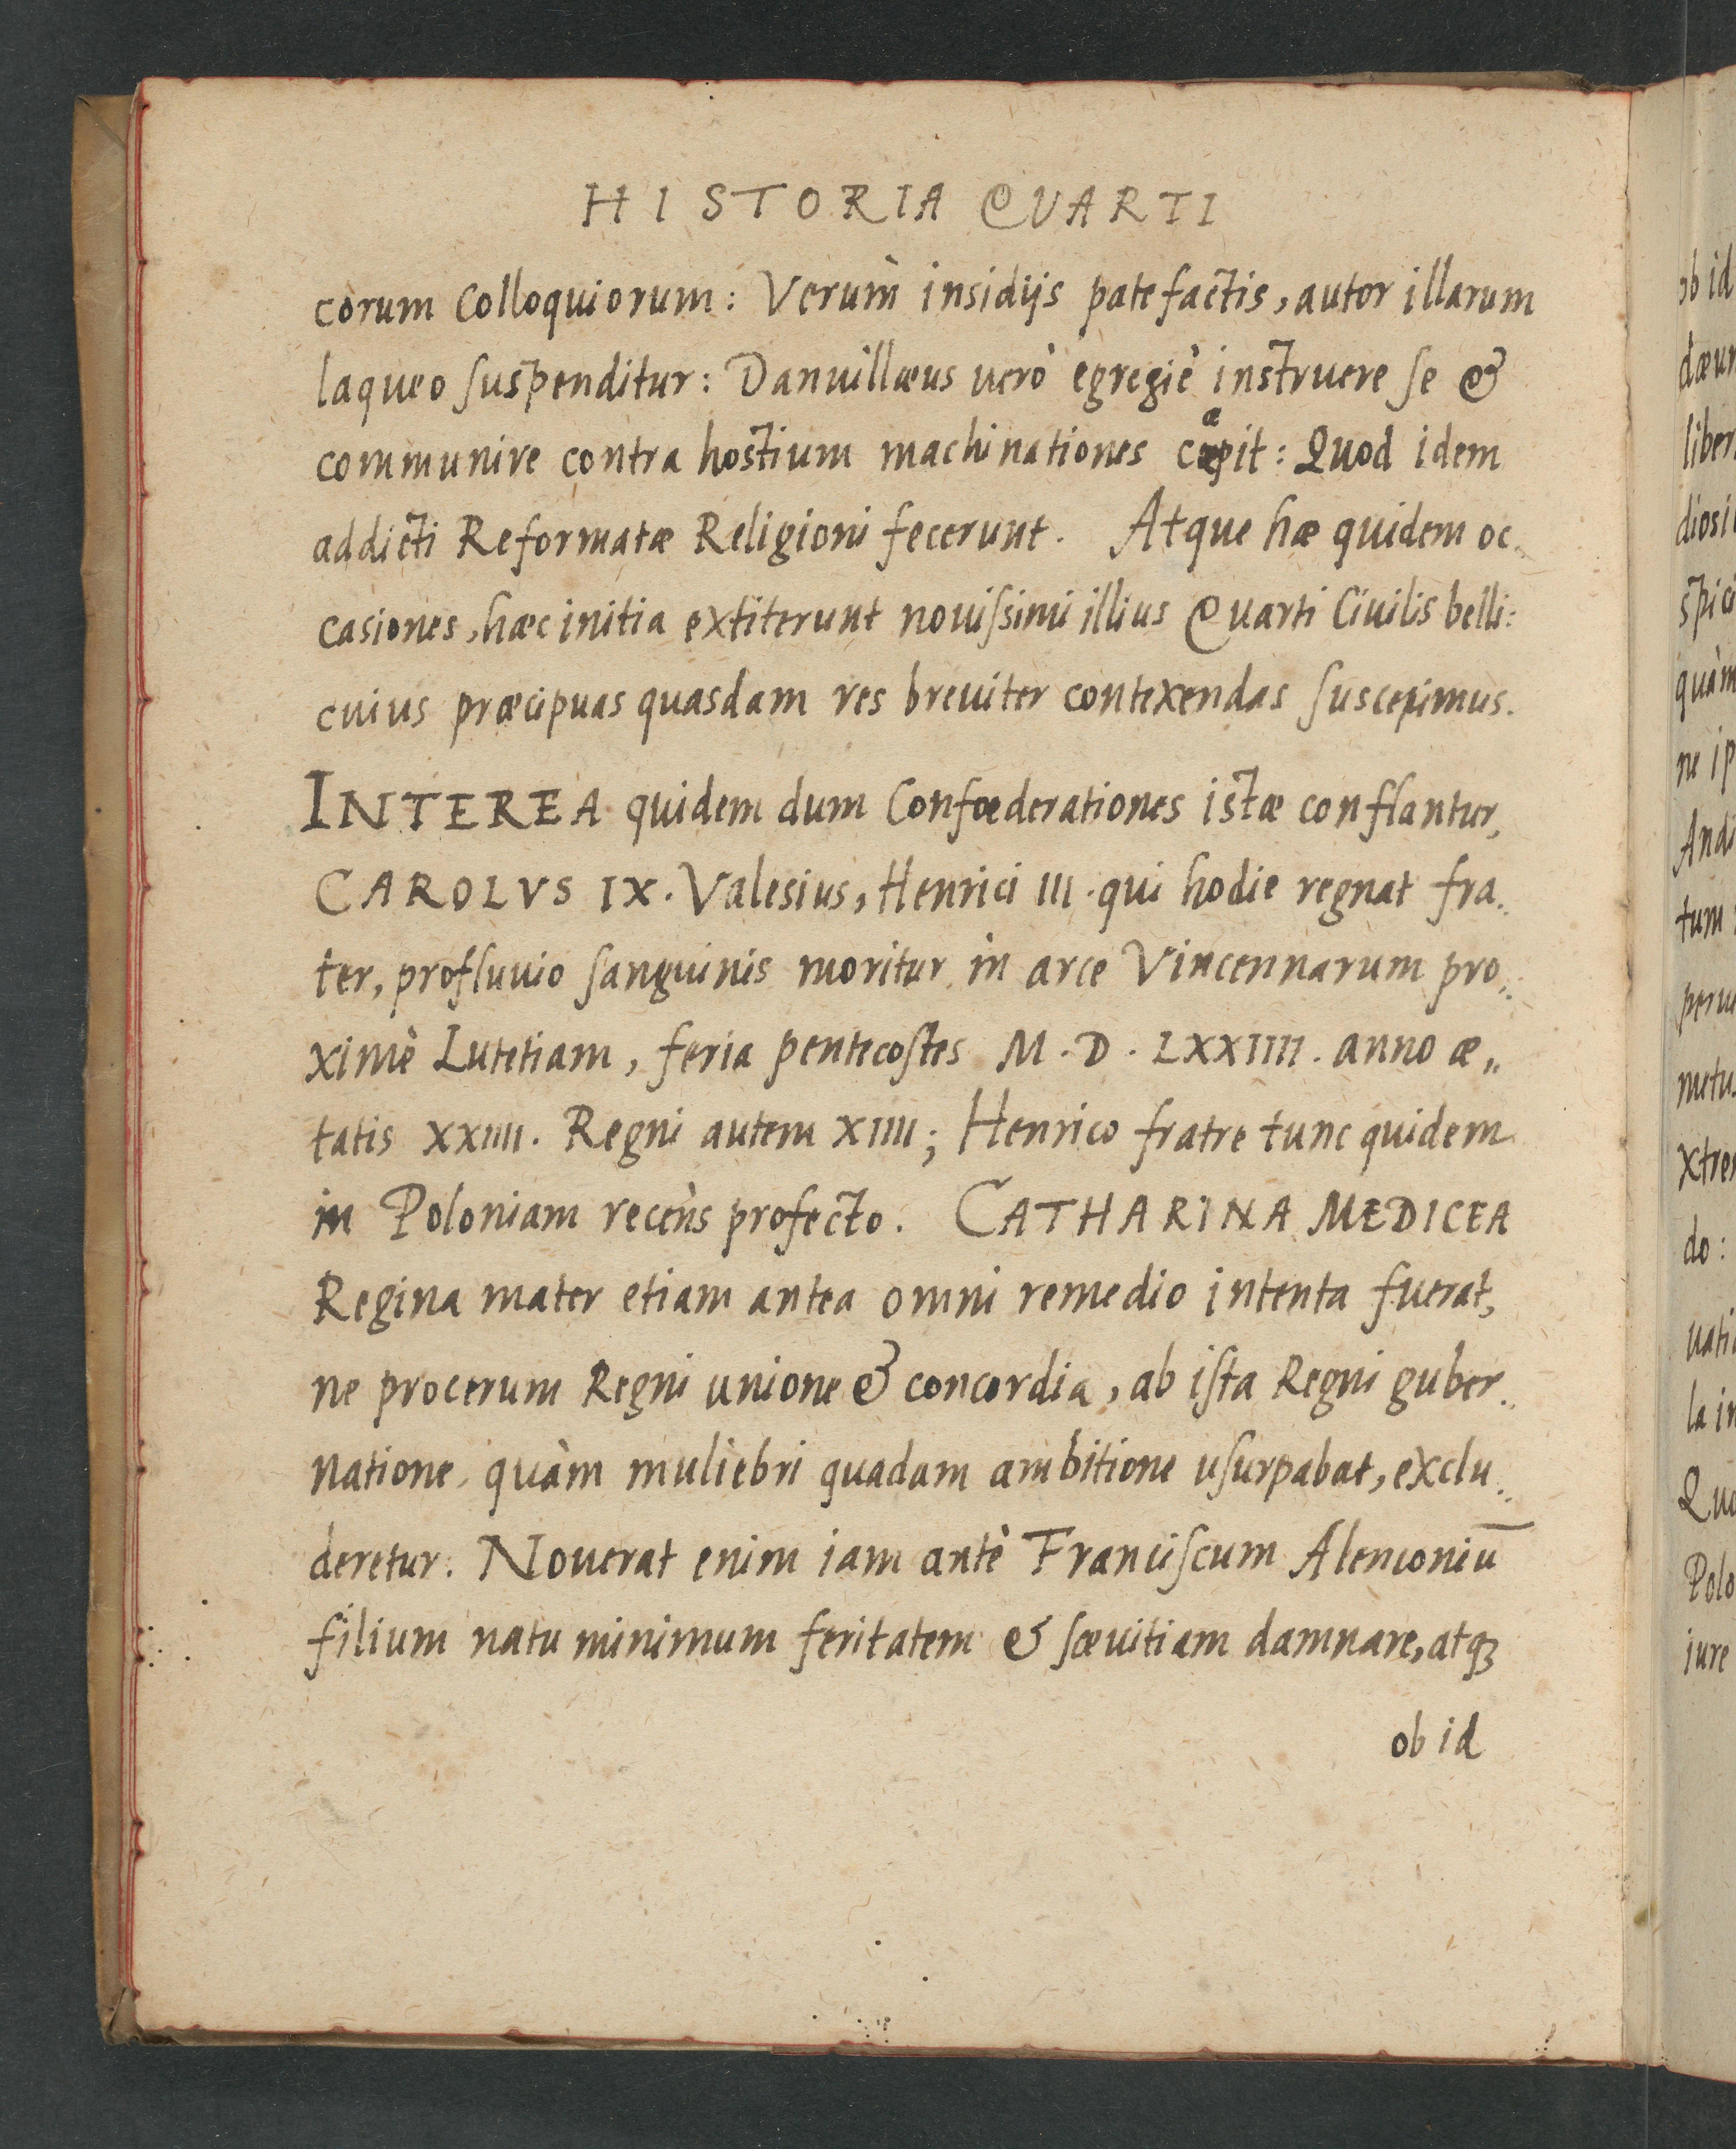 HISTORIA QVARTI
corum Colloquiorum: Verum̀ insidijs patefactis, autor illarum
laqueo ſuspenditur: Danuillæus uerò egregiè instruere ſe &
communire contra hostium machinationes cæpit: Quod idem
addicti Reformatæ Religioni fecerunt. Atque hæ quidem oc..
casiones, hæc initia extiterunt nouiſsimi illius Quarti Ciuilis belli:
cuius præcipuas quasdam res breuiter contexendas ſuscepimus.
INTEREA quidem dum Confœderationes istæ conflantur,
CAROLVS IX. Valesius, Henrici III. qui hodie regnat fra..
ter, profluuio ſanguinis moritur in arce Vincennarum pro..
ximè Lutetiam, feria pentecoſtes M.D.LXXIIII. anno æ,,
tatis XXIIII. Regni autem XIIII; Henrico fratre tunc quidem
in Poloniam recèns profecto. CATHARINA MEDICEA
Regina mater etiam antea omni remedio intenta fuerat,
ne procerum Regni unione & concordia, ab iſta Regni guber..
natione, quàm muliebri quadam ambitione uſurpabat, exclu..
deretur: Nouerat enim iam antè Franciſcum Alenconiū
filium natu minimum feritatem & ſæuitiam damnare, atqꝫ
ob id
ob id
liber
diosi
quàm
ne ip
Andi
tum
metu
do:
uati
la in
Quo
Polo
iure